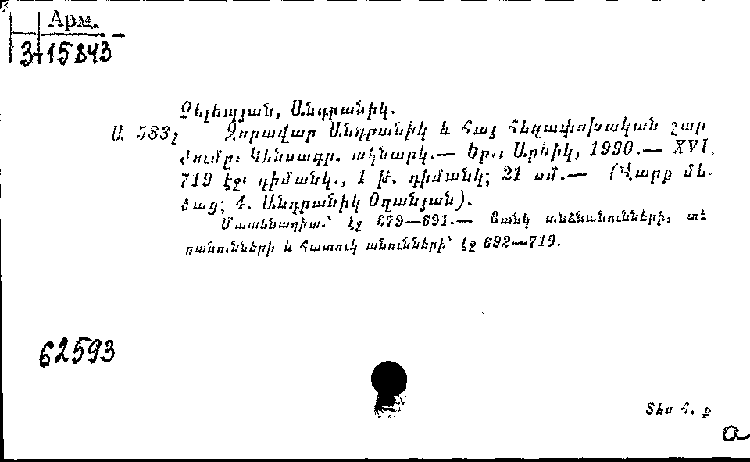 Арм.
3-15843
Չելեպյան, Անդրանիկ.
Ա 583չ Զորավար Անդրանիկ և հայ հեղափոխական շար
ժումը: Կենսագր. ակնարկ.— Եր., Արևիկ, 1990.— XVI,
719 էջ: դիմանկ., 1 թ. դիմանկ; 21 սմ.— (Վարք մե
ծաց; 4. Անդրանիկ Օզանյան).
Մատենագիտ.՝ էջ 679—691.— Ցանկ անձնանունների, տե
ղանունների և հատուկ անունների՝ էջ 692—719.
62593
Տես հ. ք
a